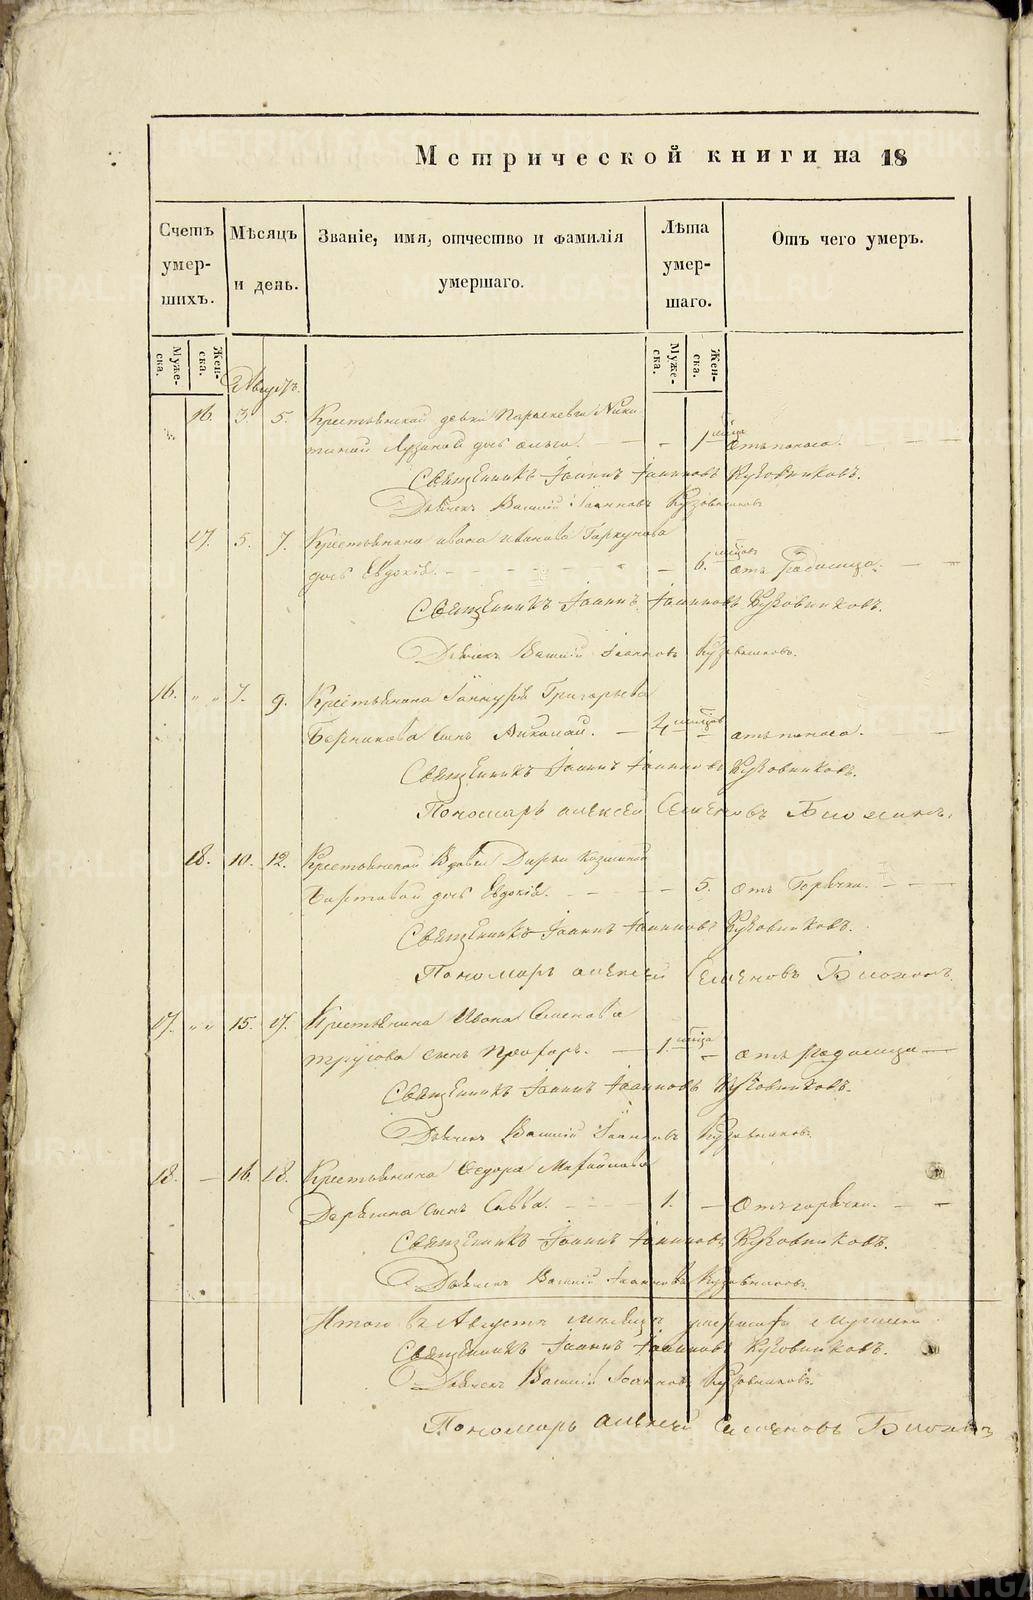 Метрической книги на 18
Счетъ умершихъ.
Мѣсяцъ и день.
Званіе, имя, отчество и фамилія умершаго.
Лѣта умершаго.
Отъ чего умеръ.
Мужеска.
Женска.
Мужеска.
Женска.
Августъ
16. 3. 5. Крестьянской девки Параскевы Ники
тиной дочь 1 отъ поноса.
Священникъ Іоаннъ Іоанновъ Кузовниковъ.
Дьячекъ Василій Іоанновъ Кузовниковъ
17. 5. 7. Крестьянина Ивана Иванова
дочь Евдокія. 6. отъ родимца.
Священникъ Іоаннъ Іоанновъ Кузовниковъ.
Дьячекъ Василій Іоанновъ Кузовниковъ.
16. " " 7. 9. Крестьянина Григорьева
сынъ Николай. 4 отъ поноса.
Священникъ Іоаннъ Іоанновъ Кузовниковъ.
Пономарь Алексей Семеновъ
18. 10. 12. Крестьянской вдовы Дарьи Козминой
дочь Евдокія. 5. отъ горячки.
Священникъ Іоаннъ Іоанновъ Кузовниковъ.
Пономарь Алексей Семеновъ
17. " " 15. 17. Крестьянина Ивана Семенова
сынъ 1. отъ родимца
Священникъ Іоаннъ Іоанновъ Кузовниковъ.
Дьячекъ Василій Іоанновъ Кузовниковъ
18. 16. 18. Крестьянина Федора
сынъ Савва. 1. Отъ горячки.
Священникъ Іоаннъ Іоанновъ Кузовниковъ.
Дьячекъ Василій Іоанновъ Кузовниковъ.
Итого въ Августѣ месяцѣ
Священникъ Іоаннъ Іоанновъ Кузовниковъ.
Дьячекъ Василій Іоанновъ Кузовниковъ.
Пономарь Алексей Семеновъ